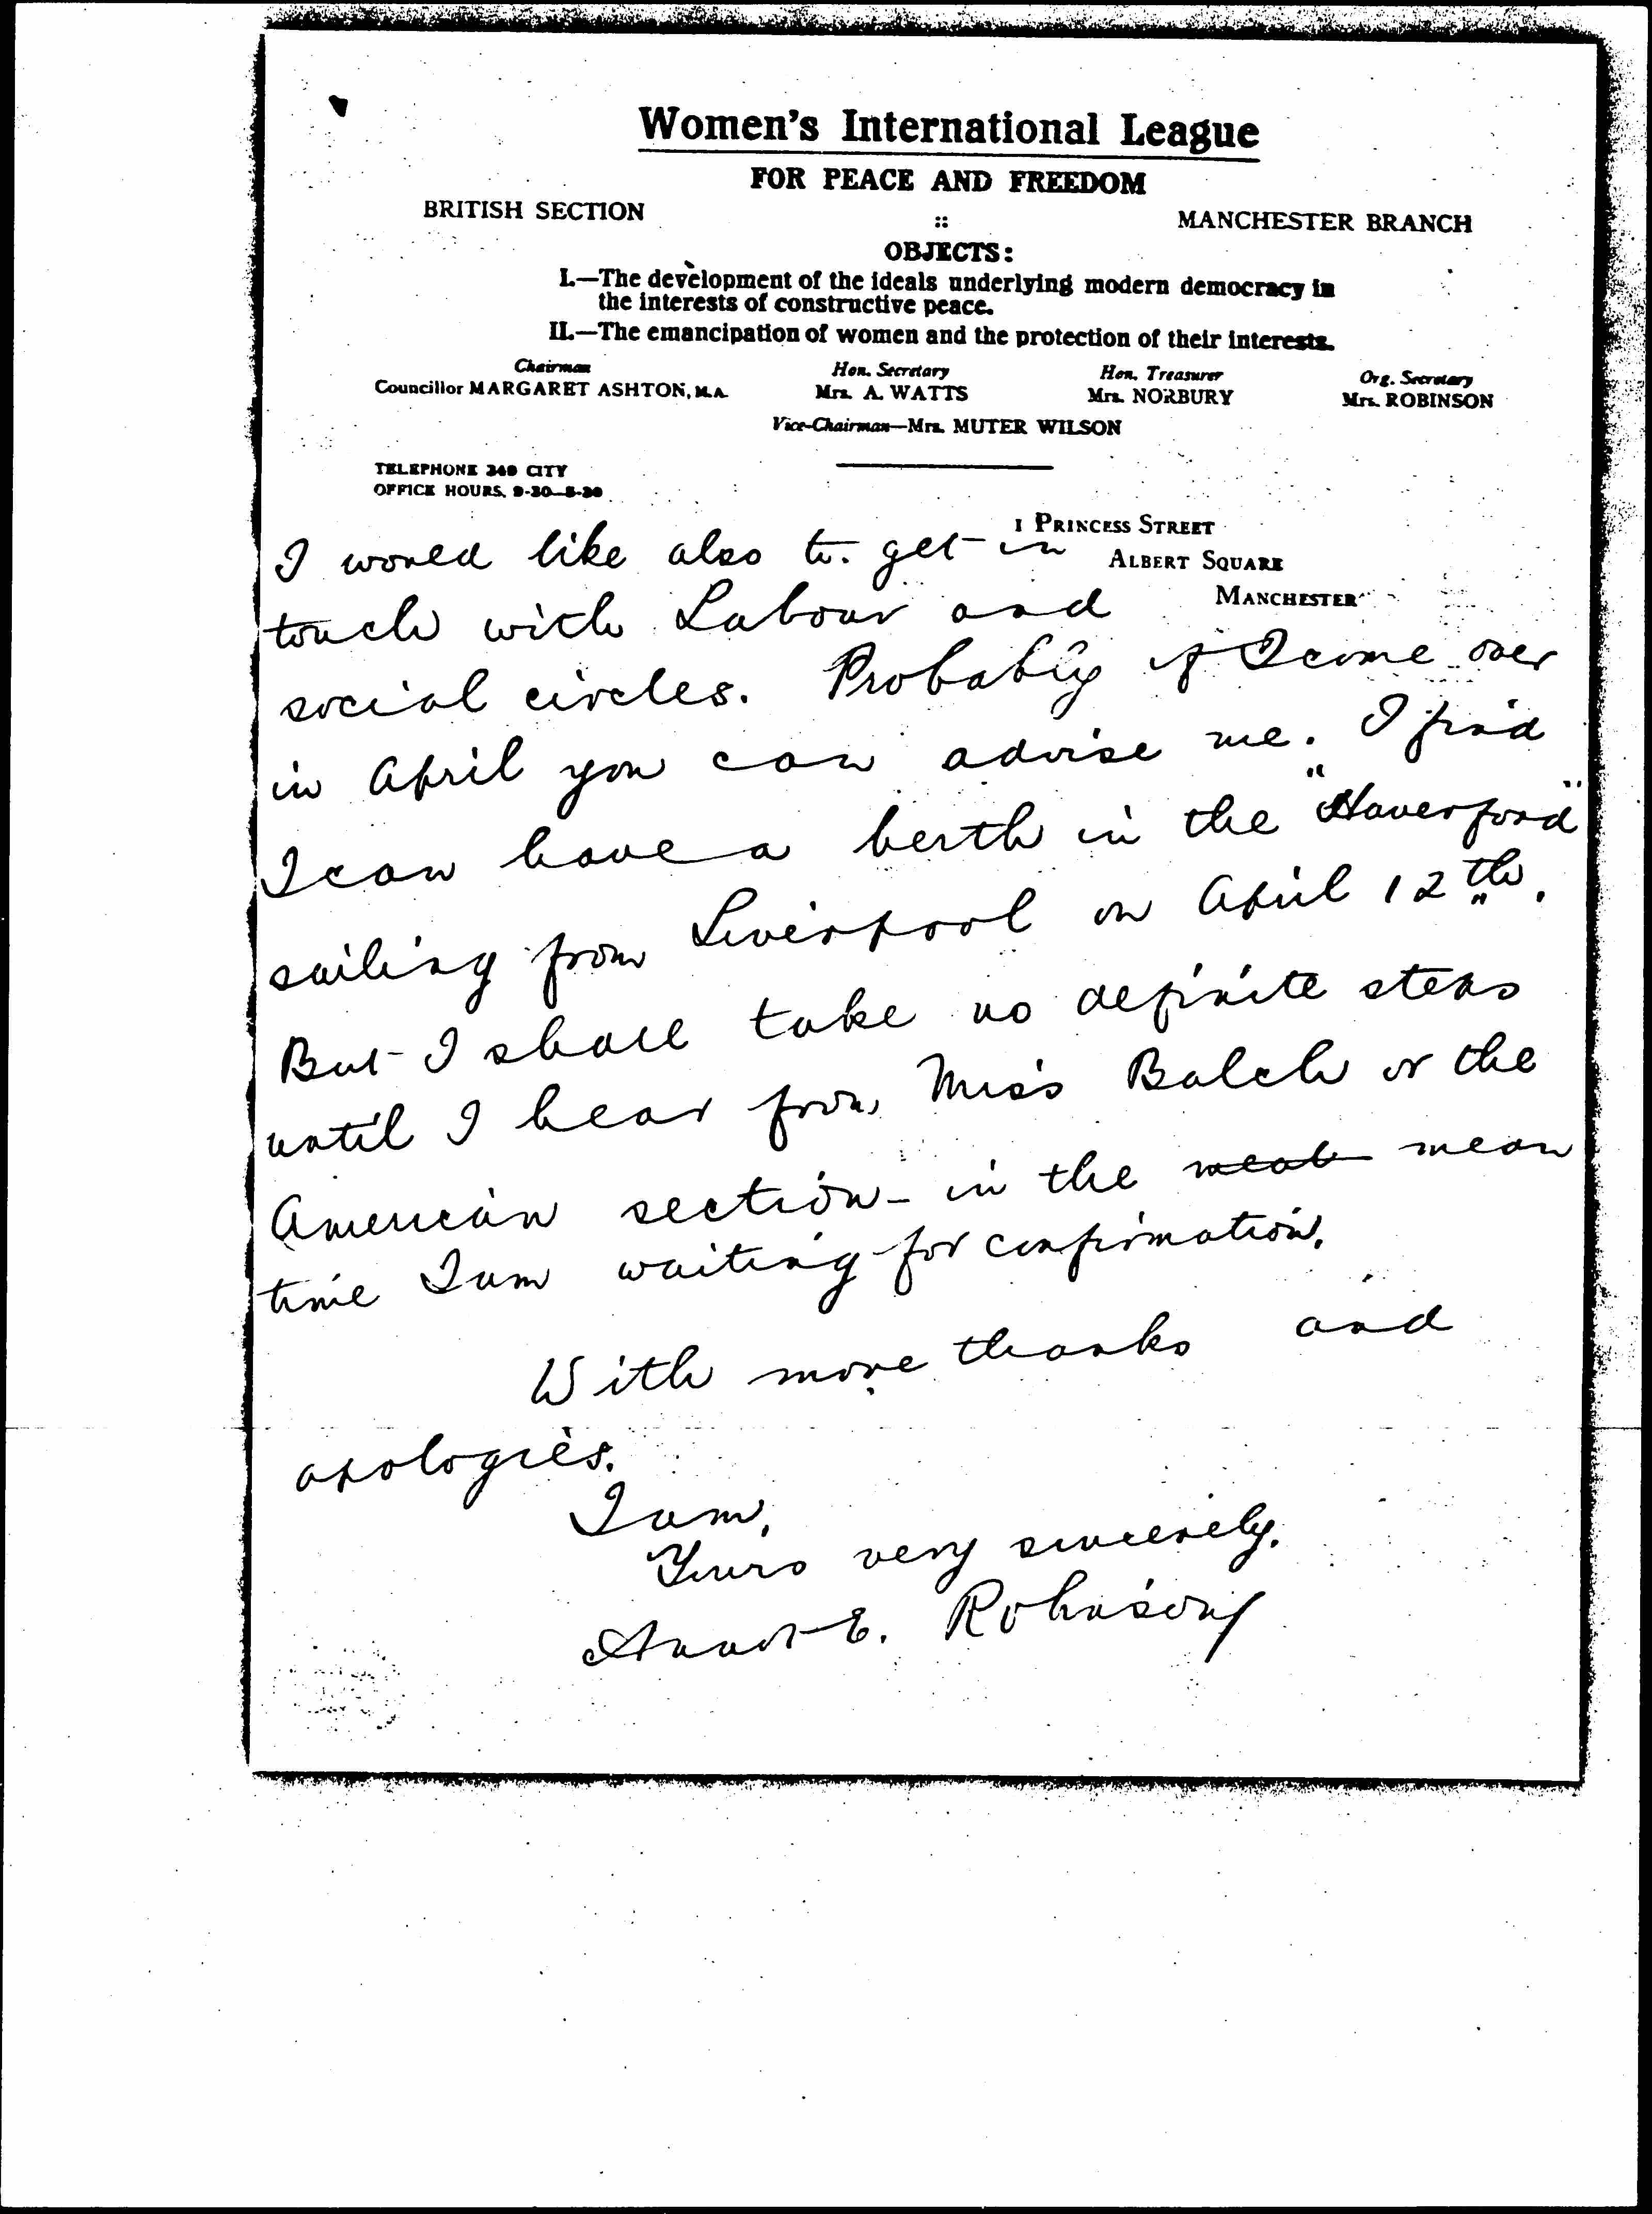 Women's International League
FOR PEACE AND FREEDOM
BRITISH SECTION :: MANCHESTER BRANCH
OBJECTS:
I.—The development of the ideals underlying modern democracy in
the interests of constructive peace.
II.—The emancipation of women and the protection of their interests.
Chairman Hon. Secretary Hon. Treasurer Org. Secretary
Councillor MARGARET ASHTON, M.A. Mrs. A. WATTS Mrs. NORBURY Mrs. ROBINSON
Vice-Chairman—Mrs. MUTER WILSON
TELEPHONE 349 CITY
OFFICE HOURS. 9-30—5-30
1 PRINCESS STREET
ALBERT SQUARE
MANCHESTER
I would like also to get in
touch with Labour and
social circles. Probably if I come over
in April you can advise me. I find
I can have a berth in the "Haverford"
sailing from Liverpool on April 12th.
But I shall take no definite steps
until I hear from Miss Balch or the
American section - in the meat mean
time I am waiting for confirmation.
With more thanks and
apologies.
I am,
Yours very sincerely.
Annot E. Robinson